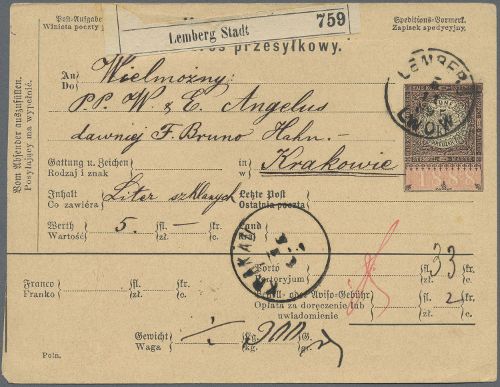 Post-Aufgabe
Winieta poczty
759
Lemberg Stadt
Speditions-Vormerk.
Zapisek spedycyjny.
przesyłkowy.
LEMBERG
LWÓW
1888
Vom Absender auszufüllen.
Posyłający ma wypełnić.
An
Do
Wielmożny:
P.P. W. & E. Angelus
dawniej F. Bruno Hahn.–
Gattung u. Zeichen
Rodzaj i znak
in
w
Krakowie
Inhalt
Co zawiera
Liter szklanych
Letzte Post
Ostatnia poczta
Werth
Wartość
5.–
fl.
zł.
kr.
c.
Land
Kraj
KRAKA
Porto
Portoryjum
fl.
zł.
33
kr.
c.
Franco
Franko
fl.
zł.
kr.
c.
oder Aviso-Gebühr
Opłata za doręczenie lub
uwiadomienie
fl.
zł.
2
kr.
c.
Gewicht
Waga
kg.
kg.
G.
gr.
Poln.